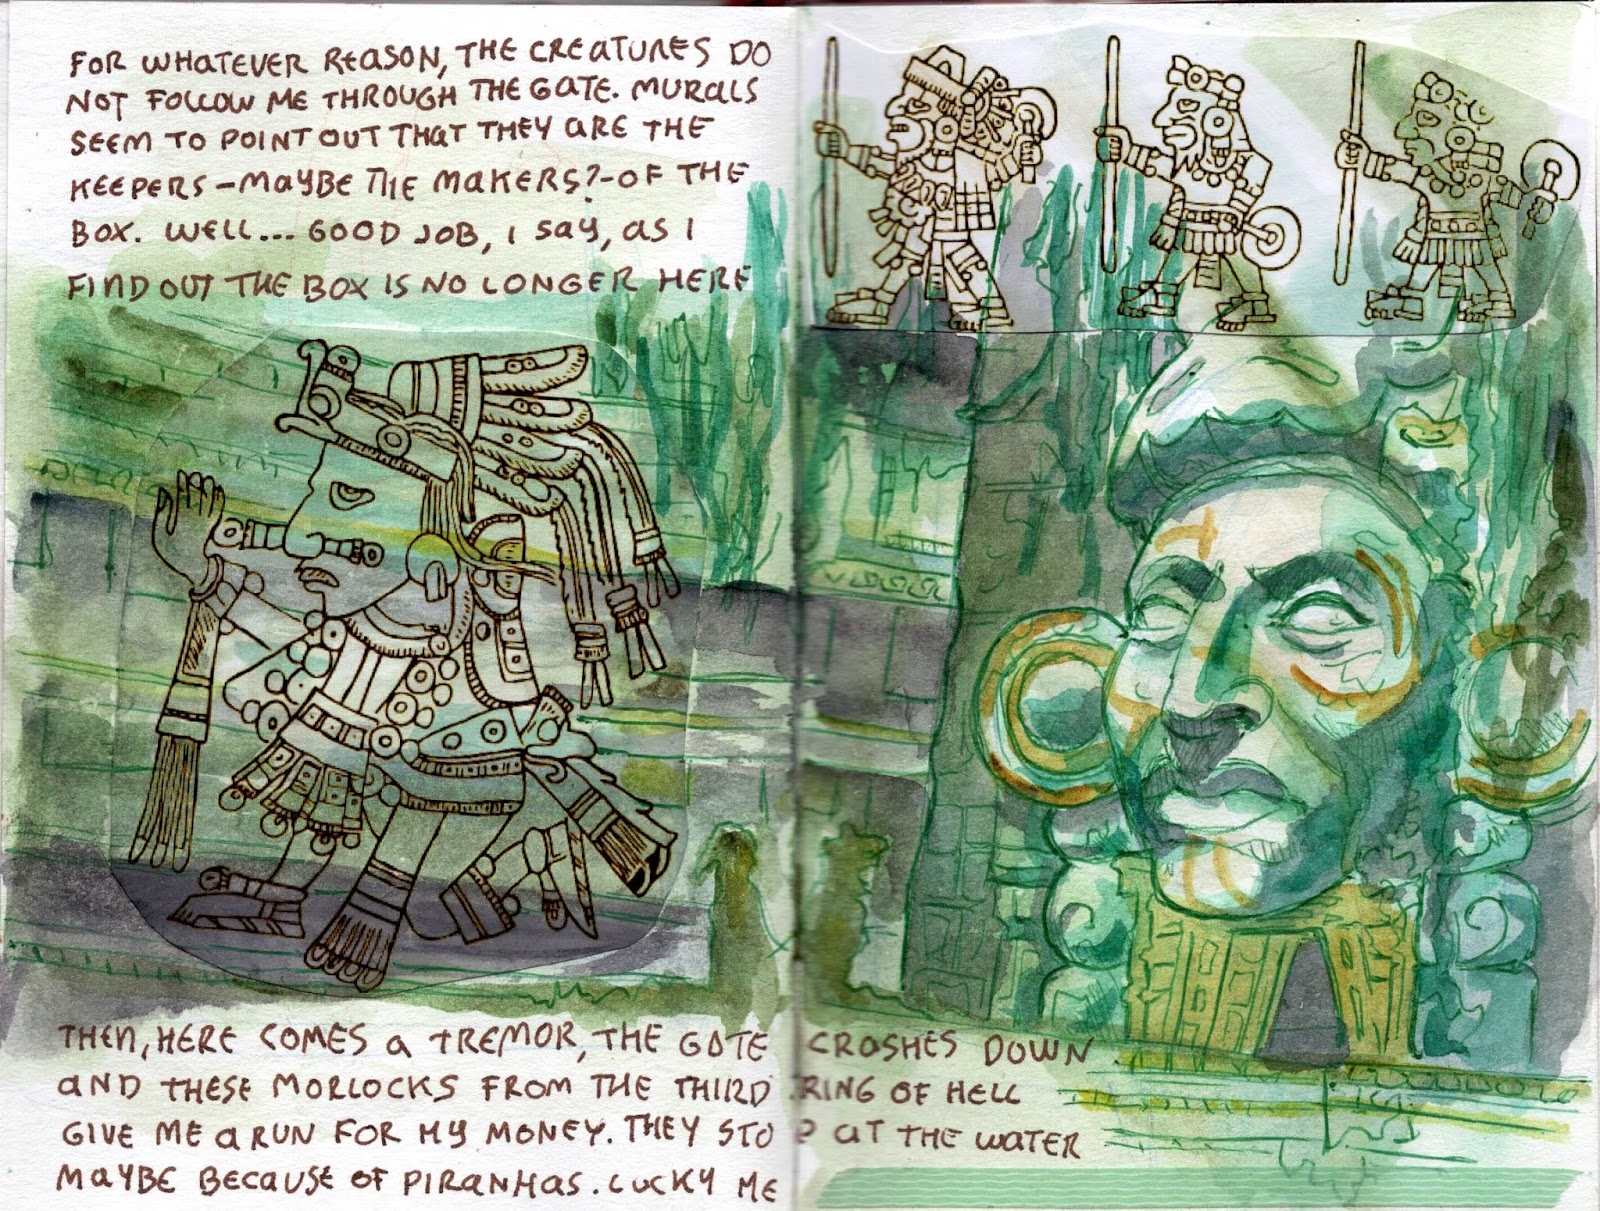 FOR WHATEVER REASON, THE CREATURES DO
NOT FOLLOW ME THROUGH THE GATE. MURALS
SEEM TO POINT OUT THAT THEY ARE THE
KEEPERS - MAYBE THE MAKERS? - OF THE
BOX. WELL... GOOD JOB, I SAY, AS I
FIND OUT THE BOX IS NO LONGER HERE
THEN, HERE COMES A TREMOR, THE GATE CRASHES DOWN
AND THESE MORLOCKS FROM THE THIRD RING OF HELL
GIVE ME A RUN FOR MY MONEY. THEY STOP AT THE WATER
MAYBE BECAUSE OF PIRANHAS. LUCKY ME